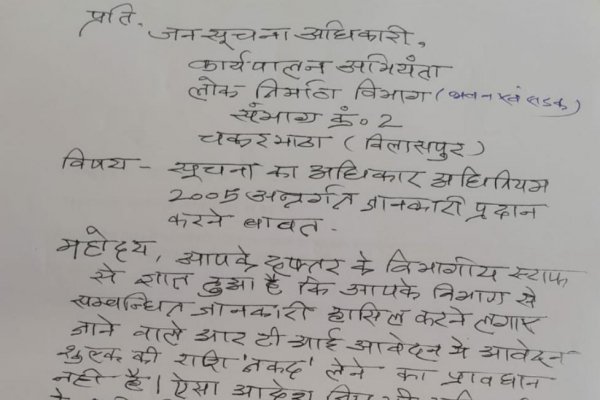 प्रति.
जन सूचना अधिकारी,
कार्यपालन अभियंता
लोक निर्माण विभाग (भवन एवं सडक)
संभाग क्रं॰ 2
चकरभाठा (विलासपुर)
विषय - सूचना का अधिकार अधिनियम
2005 अन्तर्गत जानकारी प्रदान
करने बावत.
महोदय, आपके दफ्तर के विभागीय स्टाफ
से ज्ञात हुआ है कि आपके विभाग से
सम्वन्धित जानकारी हासिल करने लगाए
जाने वाले आर टी आई आवेदन मे आवेदन
शुल्क की राशि 'नकद' लेने का प्रावधान
नही है। ऐसा आदेश